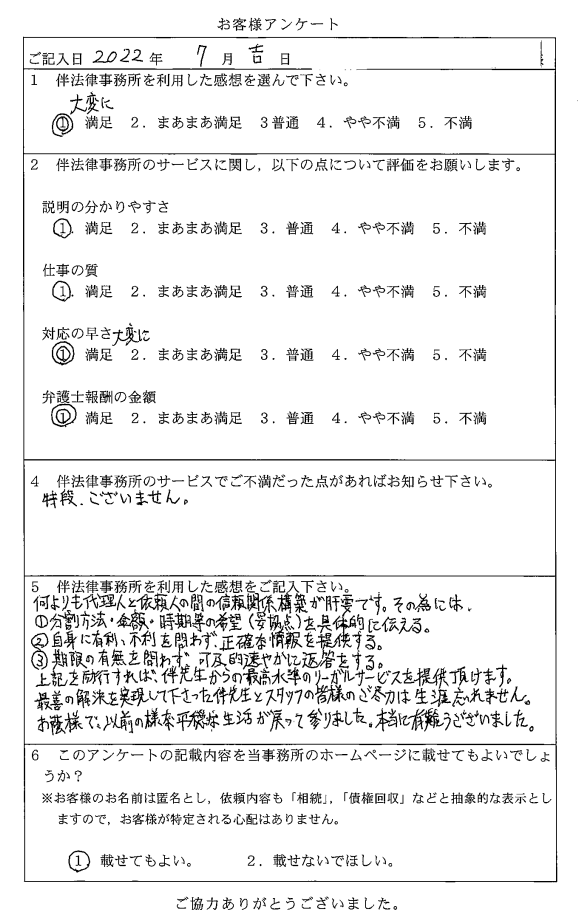 お客様アンケート
ご記入日 2022年 7月吉日
1 伴法律事務所を利用した感想を選んで下さい。
大変に
① 満足 2．まあまあ満足 3普通 4．やや不満 5．不満
2 伴法律事務所のサービスに関し，以下の点について評価をお願いします。
説明の分かりやすさ
①．満足 2．まあまあ満足 3．普通 4．やや不満 5．不満
仕事の質
①．満足 2．まあまあ満足 3．普通 4．やや不満 5．不満
対応の早さ 大変に
① 満足 2．まあまあ満足 3．普通 4．やや不満 5．不満
弁護士報酬の金額
① 満足 2．まあまあ満足 3．普通 4．やや不満 5．不満
4 伴法律事務所のサービスでご不満だった点があればお知らせ下さい。
特段、ございません。
5 伴法律事務所を利用した感想をご記入下さい。
何よりも代理人と依頼人の間の信頼関係構築が肝要です。その為には、
①分割方法・金額・時期等の希望（妥協点）を具体的に伝える。
②自身に有利、不利を問わず、正確な情報を提供する。
③期限の有無を問わず、可及的速やかに返答をする。
上記を励行すれば、伴先生からの最高水準のリーガルサービスを提供頂けます。
最善の解決を実現して下さった伴先生とスタッフの皆様のご尽力は生涯忘れません。
お陰様で、以前の様な平穏な生活が戻って参りました。本当に有難うございました。
6 このアンケートの記載内容を当事務所のホームページに載せてもよいでしょ
うか？
※お客様のお名前は匿名とし，依頼内容も「相続」，「債権回収」などと抽象的な表示とし
ますので，お客様が特定される心配はありません。
① 載せてもよい。 2．載せないでほしい。
ご協力ありがとうございました。